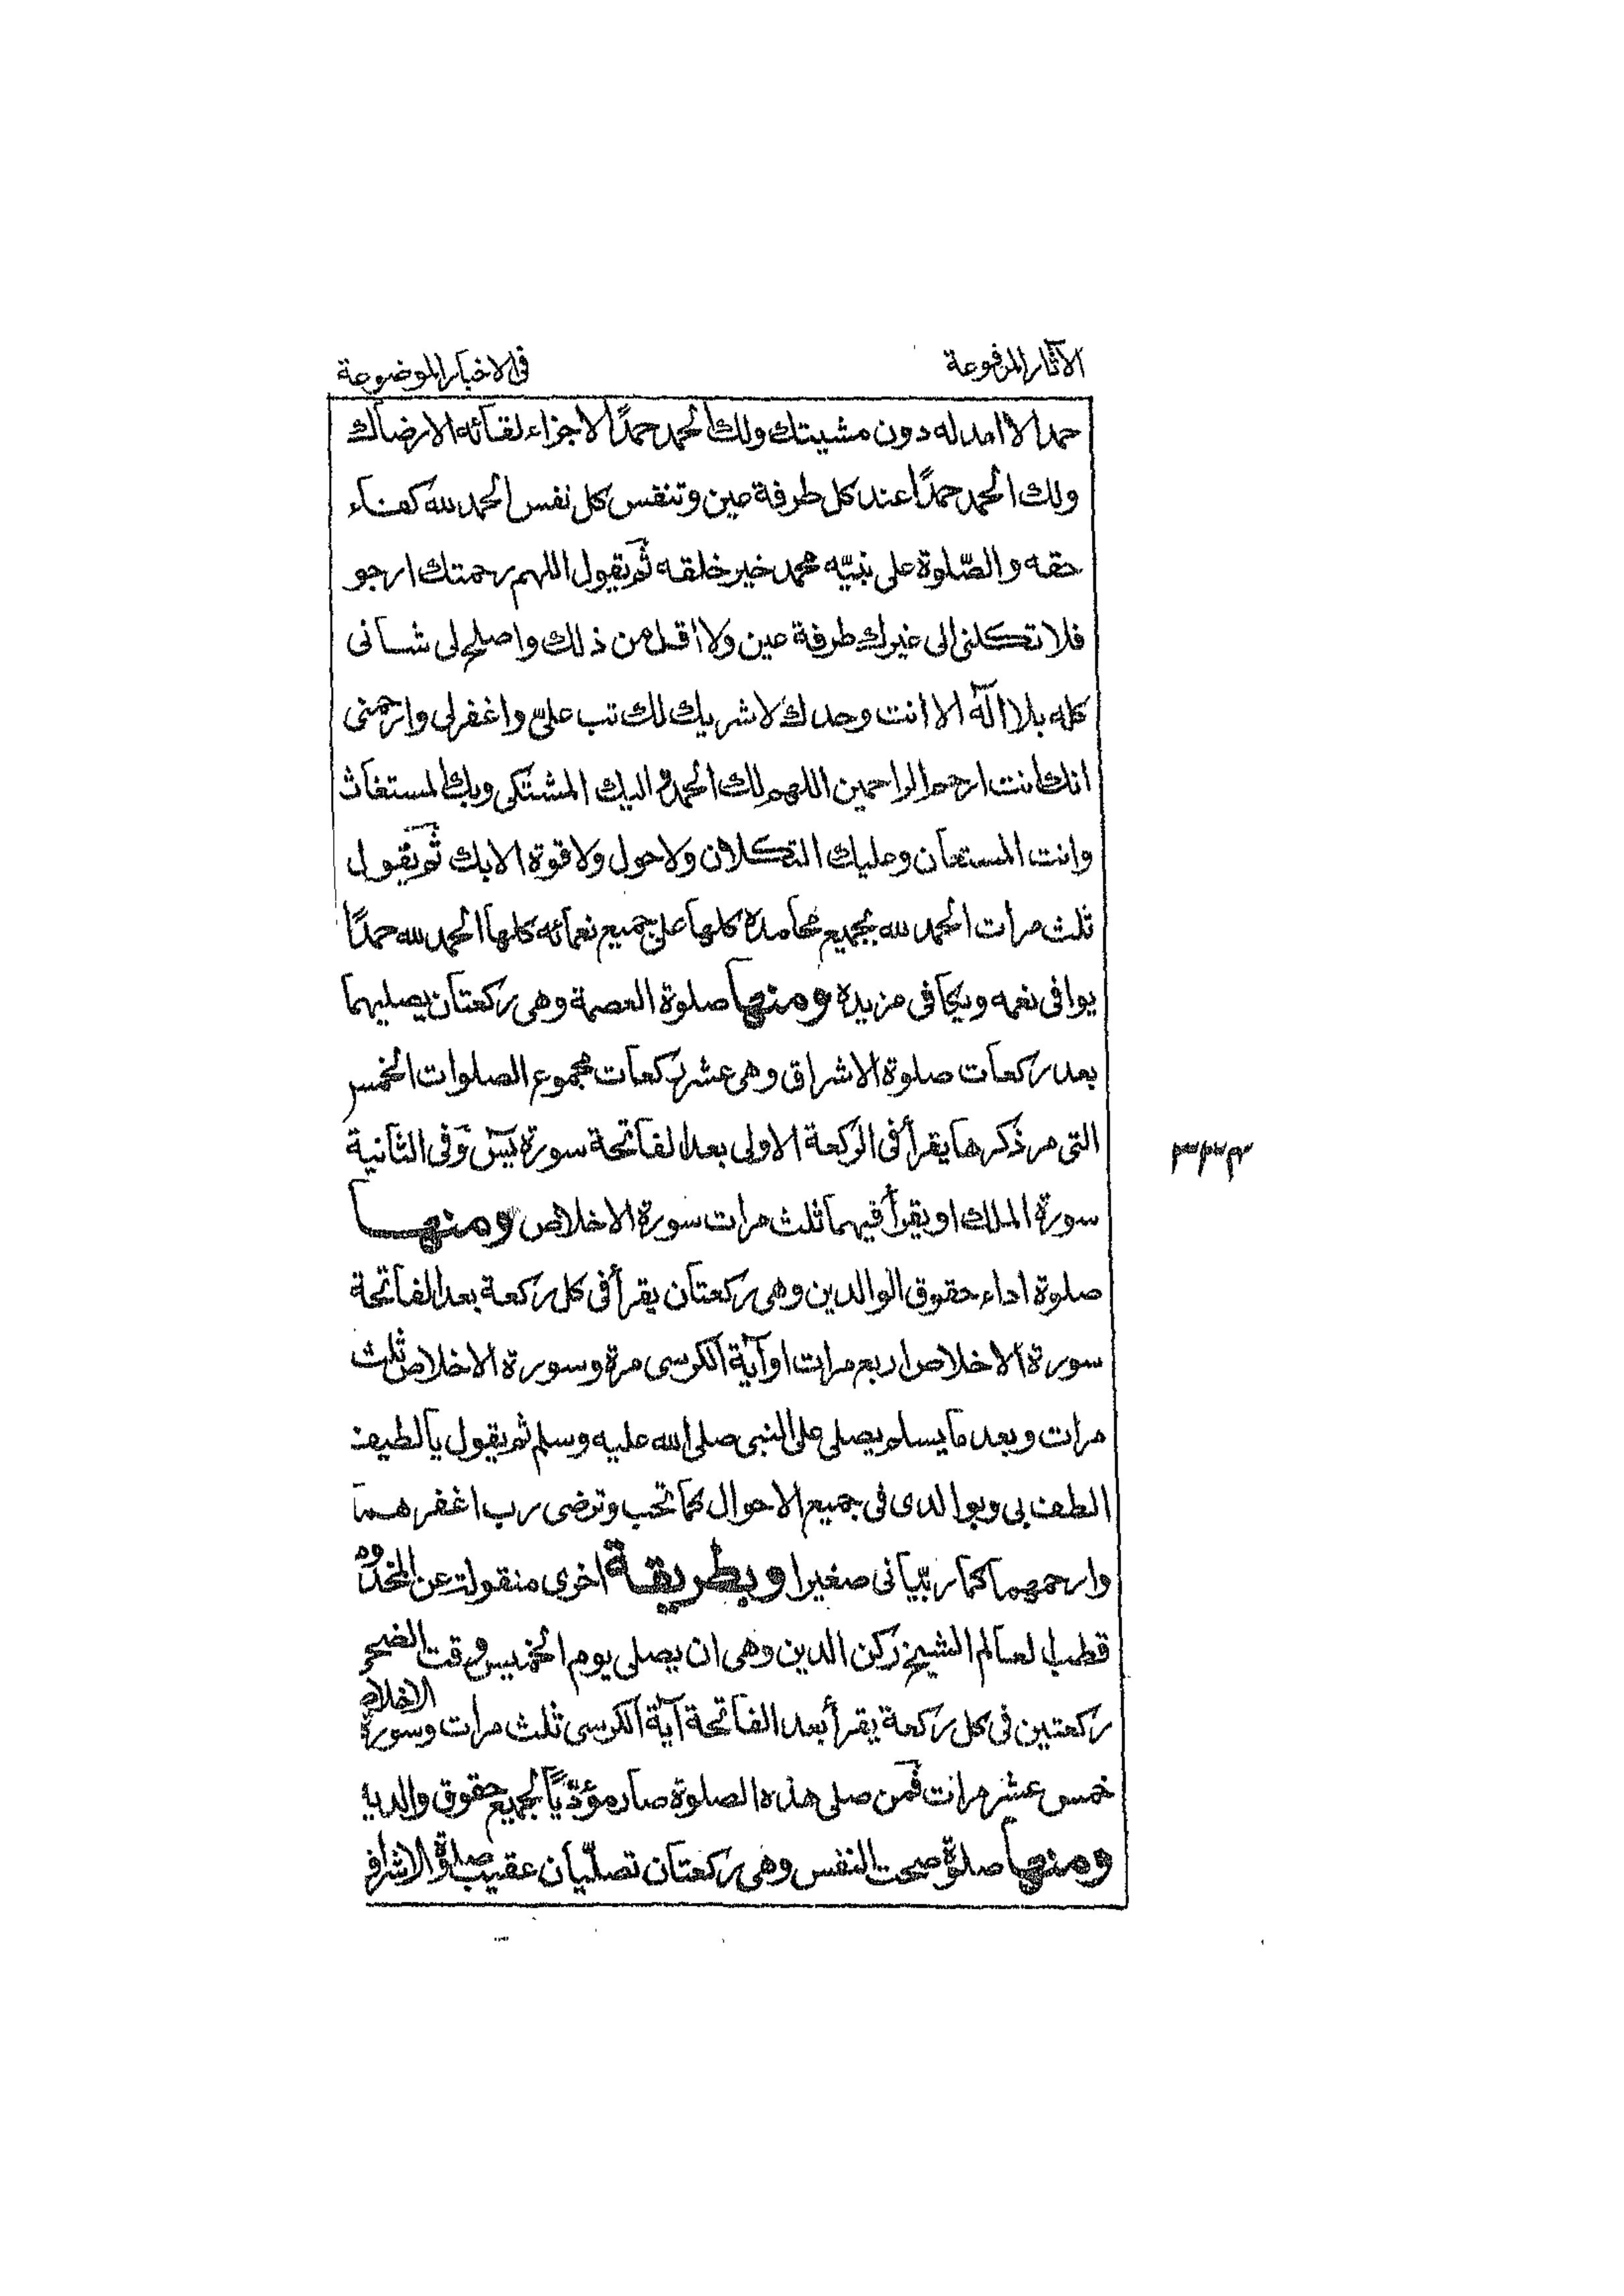 الآثار المرفوعة
فى الاخبار الموضوعة
حمدا لا امد له دون مشيتك ولك الحمد حمدًا لا جزاء لقائه الا رضاك
ولك الحمد حمدًا عند كل طرفة عين وتنفس كل نفس الحمد لله كفاء
حقه والصّلوة على نبيّه محمد خير خلقه ثم يقول اللهم رحمتك ارجو
فلا تكلنى الى غيرك طرفة عين ولا اقل من ذلك واصلح لى شانى
كله بلا اله الا انت وحدك لا شريك لك تب علىّ واغفر لى وارحمنى
انك انت ارحم الراحمين اللهم لك الحمد و اليك المشتكى وبك المستغاث
وانت المستعان وعليك التكلان ولا حول ولا قوة الا بك ثم يقول
ثلث مرات الحمد لله بجميع محامده كلها على جميع نعمائه كلها الحمد لله حمدًا
يوافى نعمه ويكافى مزيده ومنها صلوة العصمة وهى ركعتان يصليهما
بعد ركعات صلوة الاشراق وهى عشر ركعات مجموع الصلوات الخمس
التى مر ذكرها يقرأ فى الركعة الاولى بعد الفاتحة سورة يس وفى الثانية
٣٣٣
سورة الملك او يقرأ فيهما ثلث مرات سورة الاخلاص ومنها
صلوة اداء حقوق الوالدين وهى ركعتان يقرأ فى كل ركعة بعد الفاتحة
سورة الاخلاص اربع مرات او آية الكرسى مرة وسورة الاخلاص ثلث
مرات وبعد ما يسلم يصلى على النبى صلى الله عليه وسلم ثم يقول يا لطيف
الطف بى وبوالدى فى جميع الاحوال كما تحب وترضى رب اغفر هما
وارحمهما كما ربّيانى صغيرا وبطريقة اخرى منقولة عن المخدوم
قطب العالم الشيخ ركن الدين وهى ان يصلى يوم الخميس وقت الضحى
ركعتين فى كل ركعة يقرأ بعد الفاتحة آية الكرسى ثلث مرات وسورة الاخلاص
خمس عشر مرات فمن صلى هذه الصلوة صار مؤدّيًا لجميع حقوق والديه
ومنها صلوة صحت النفس وهى ركعتان تصلّيان عقيب صلوة الاشراق